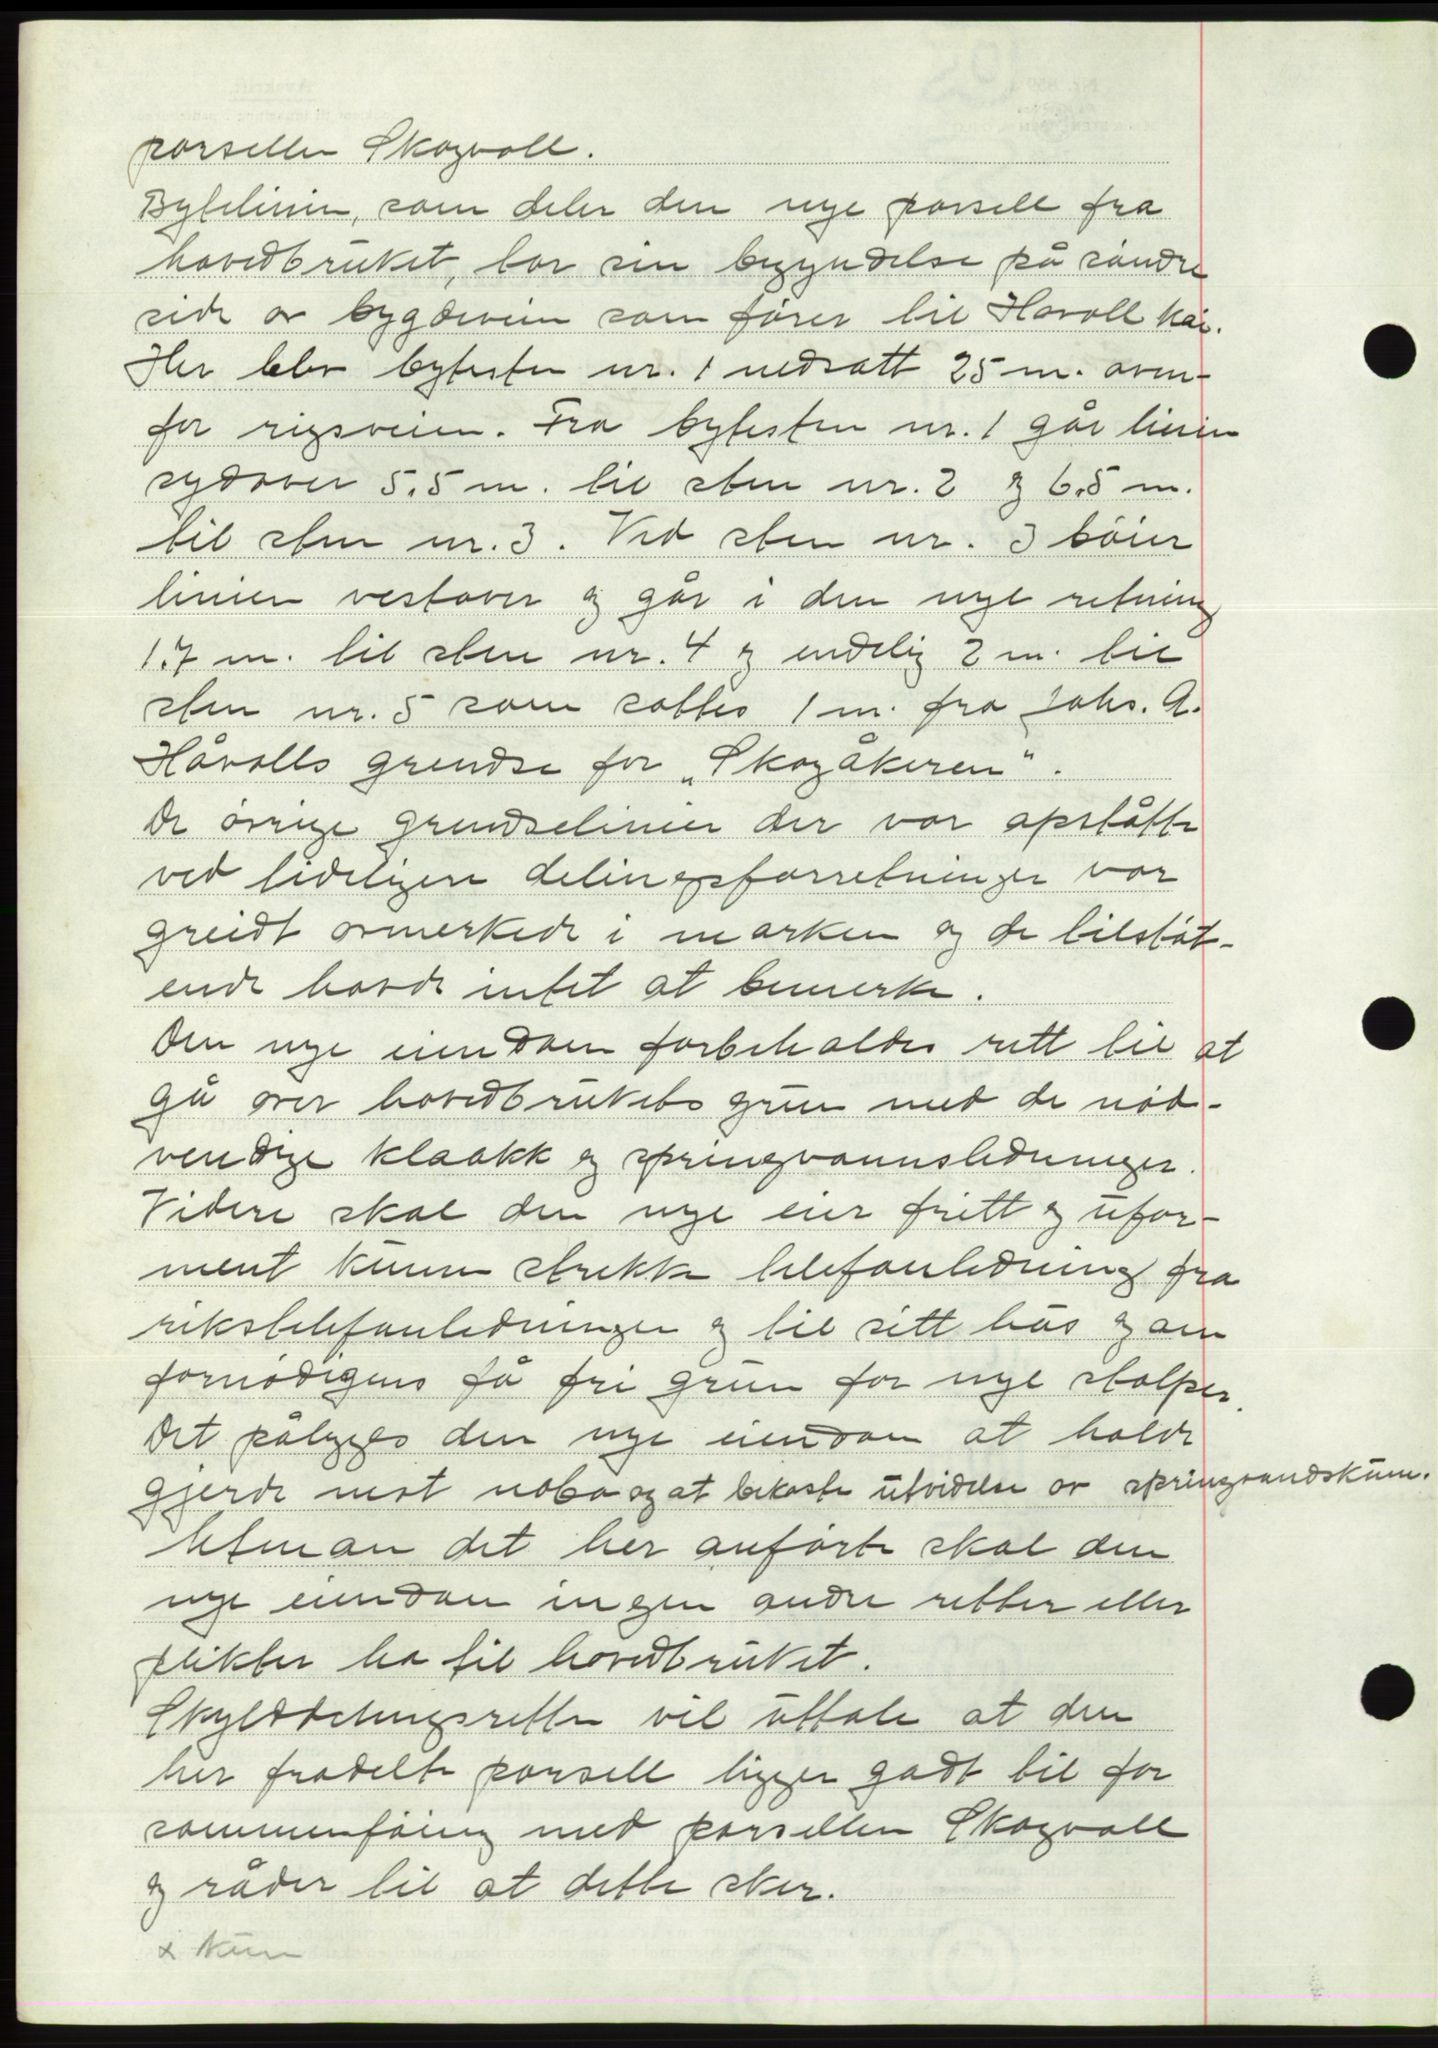 parsellen Skogvoll.
Bytelinin, som deler den nye parsell fra
hovedbruket, tar sin begyndelse på søndre
side av bygdeveien som fører til Håvoll kai.
Her blev bytesten nr. 1 nedsatt 25 m. oven-
for rigsveien. Fra bytesten nr. 1 går linien
sydover 5.5 m. til sten nr. 2 og 6.5 m.
til sten nr. 3. Ved sten nr. 3 bøier
linien vestover og går i den nye retning
1.7 m. til sten nr. 4 og endelig 2 m. til
sten nr. 5 som sattes 1 m. fra Johs. A.
Håvolls grendse for „Skogåkeren“.
De øvrige grendselinier der var opståtte
ved tideligere delingsforretninger var
greidt avmerkede i marken og de tilstøt-
ende havde intet at bemerke.
Den nye eiendom forbeholdes rett til at
gå over hovedbrukets grun med de nød-
vendige kloakk og springvannsledninger.
Videre skal den nye eier fritt og ufor-
ment kunne strekke telefonledning fra
rikstelefonledningen og til sitt hus og om
fornødigens få fri grun for nye stolper.
Det pålegges den nye eiendom at holde
gjerde mot nabo og at bekoste utvidelse av springvandskum.
Utenom det her anførte skal den
nye eiendom ingen andre retter eller
plikter ha til hovedbruket.
Skylddelingsretten vil uttale at den
her fradelte parsell ligger godt til for
sammenføing med parsellen Skogvoll
og råder til at dette sker.
x kum